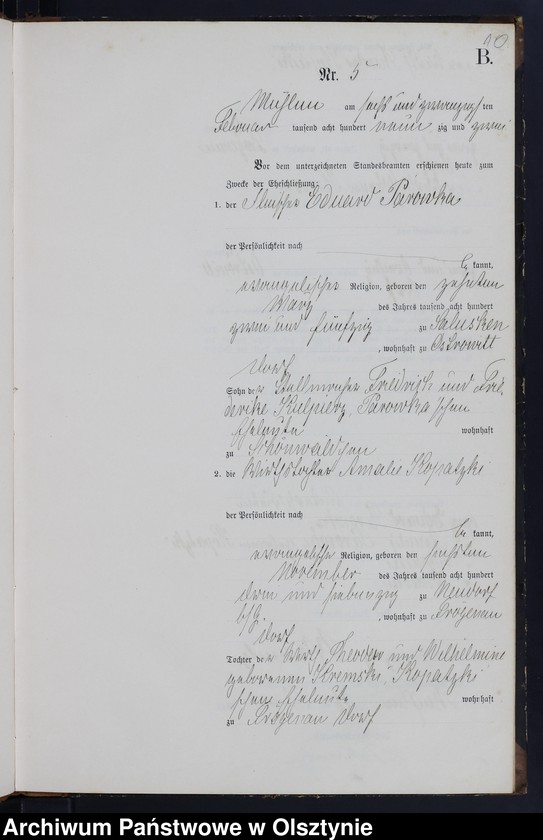 10
B.
Nr. 5
Mühlen am sechs und zwanzigsten
Februar tausend acht hundert neun zig und zwei
Vor dem unterzeichneten Standesbeamten erschienen heute zum
Zwecke der Eheschließung:
1. der Fleischer Eduard Parowka
der Persönlichkeit nach
be kannt,
evangelischer Religion, geboren den zehnten
März des Jahres tausend acht hundert
zwei und fünfzig zu Salusken
, wohnhaft zu Ostrowitt
Dorf
Sohn der Friedrich und Frie-
derike Kulpierz, Parowka'schen
Eheleute wohnhaft
zu Schönwäldchen
2. die Wirthstochter Amalie Kopatzki
der Persönlichkeit nach
be kannt,
evangelische Religion, geboren den sechsten
November des Jahres tausend acht hundert
drei und siebenzig zu Neudorf
, wohnhaft zu Dröbnau
Dorf
Tochter der Wirth Theodor und Wilhelmine
geborenen Skremski, Kopatzki
schen Eheleute wohnhaft
zu Dröbnau Dorf
Archiwum Państwowe w Olsztynie